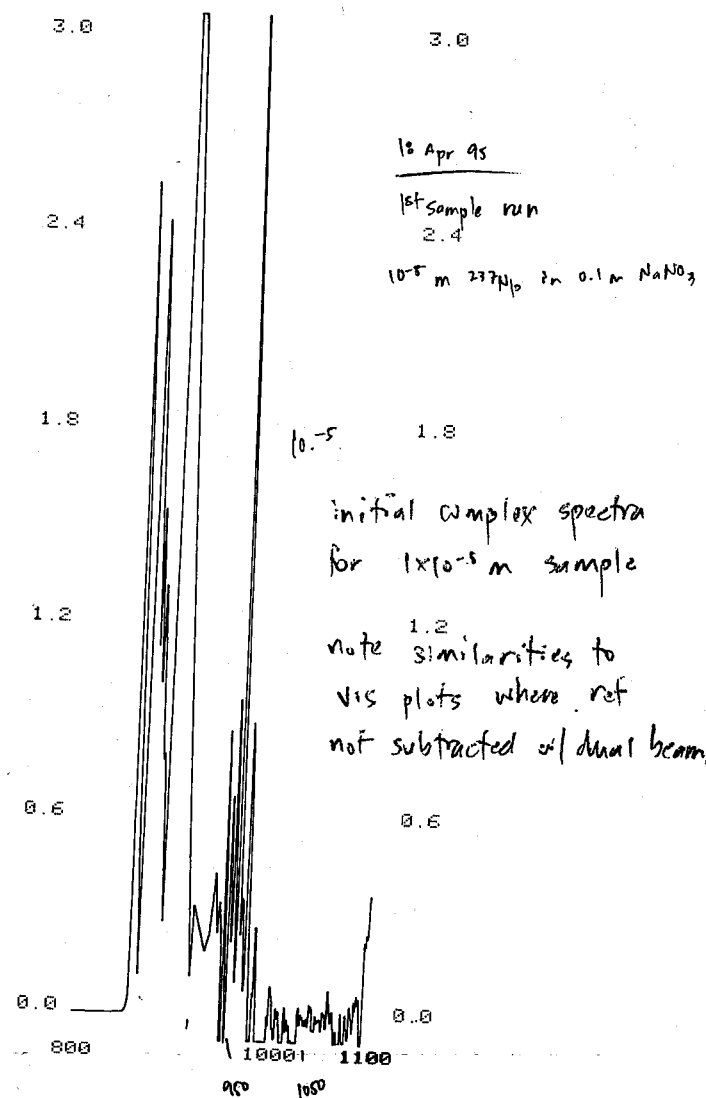 3.0
3.0
18 Apr 95
1st sample run
2.4
2.4
10-5 m 237Np in 0.1 m NaNO3
1.8
1.8
10.-5
initial complex spectra
for 1x10-5 m sample
1.2
1.2
note similarities to
vis plots where ref
not subtracted w/ dual beam
0.6
0.6
0.0
0.0
800
1000
1100
950
1050